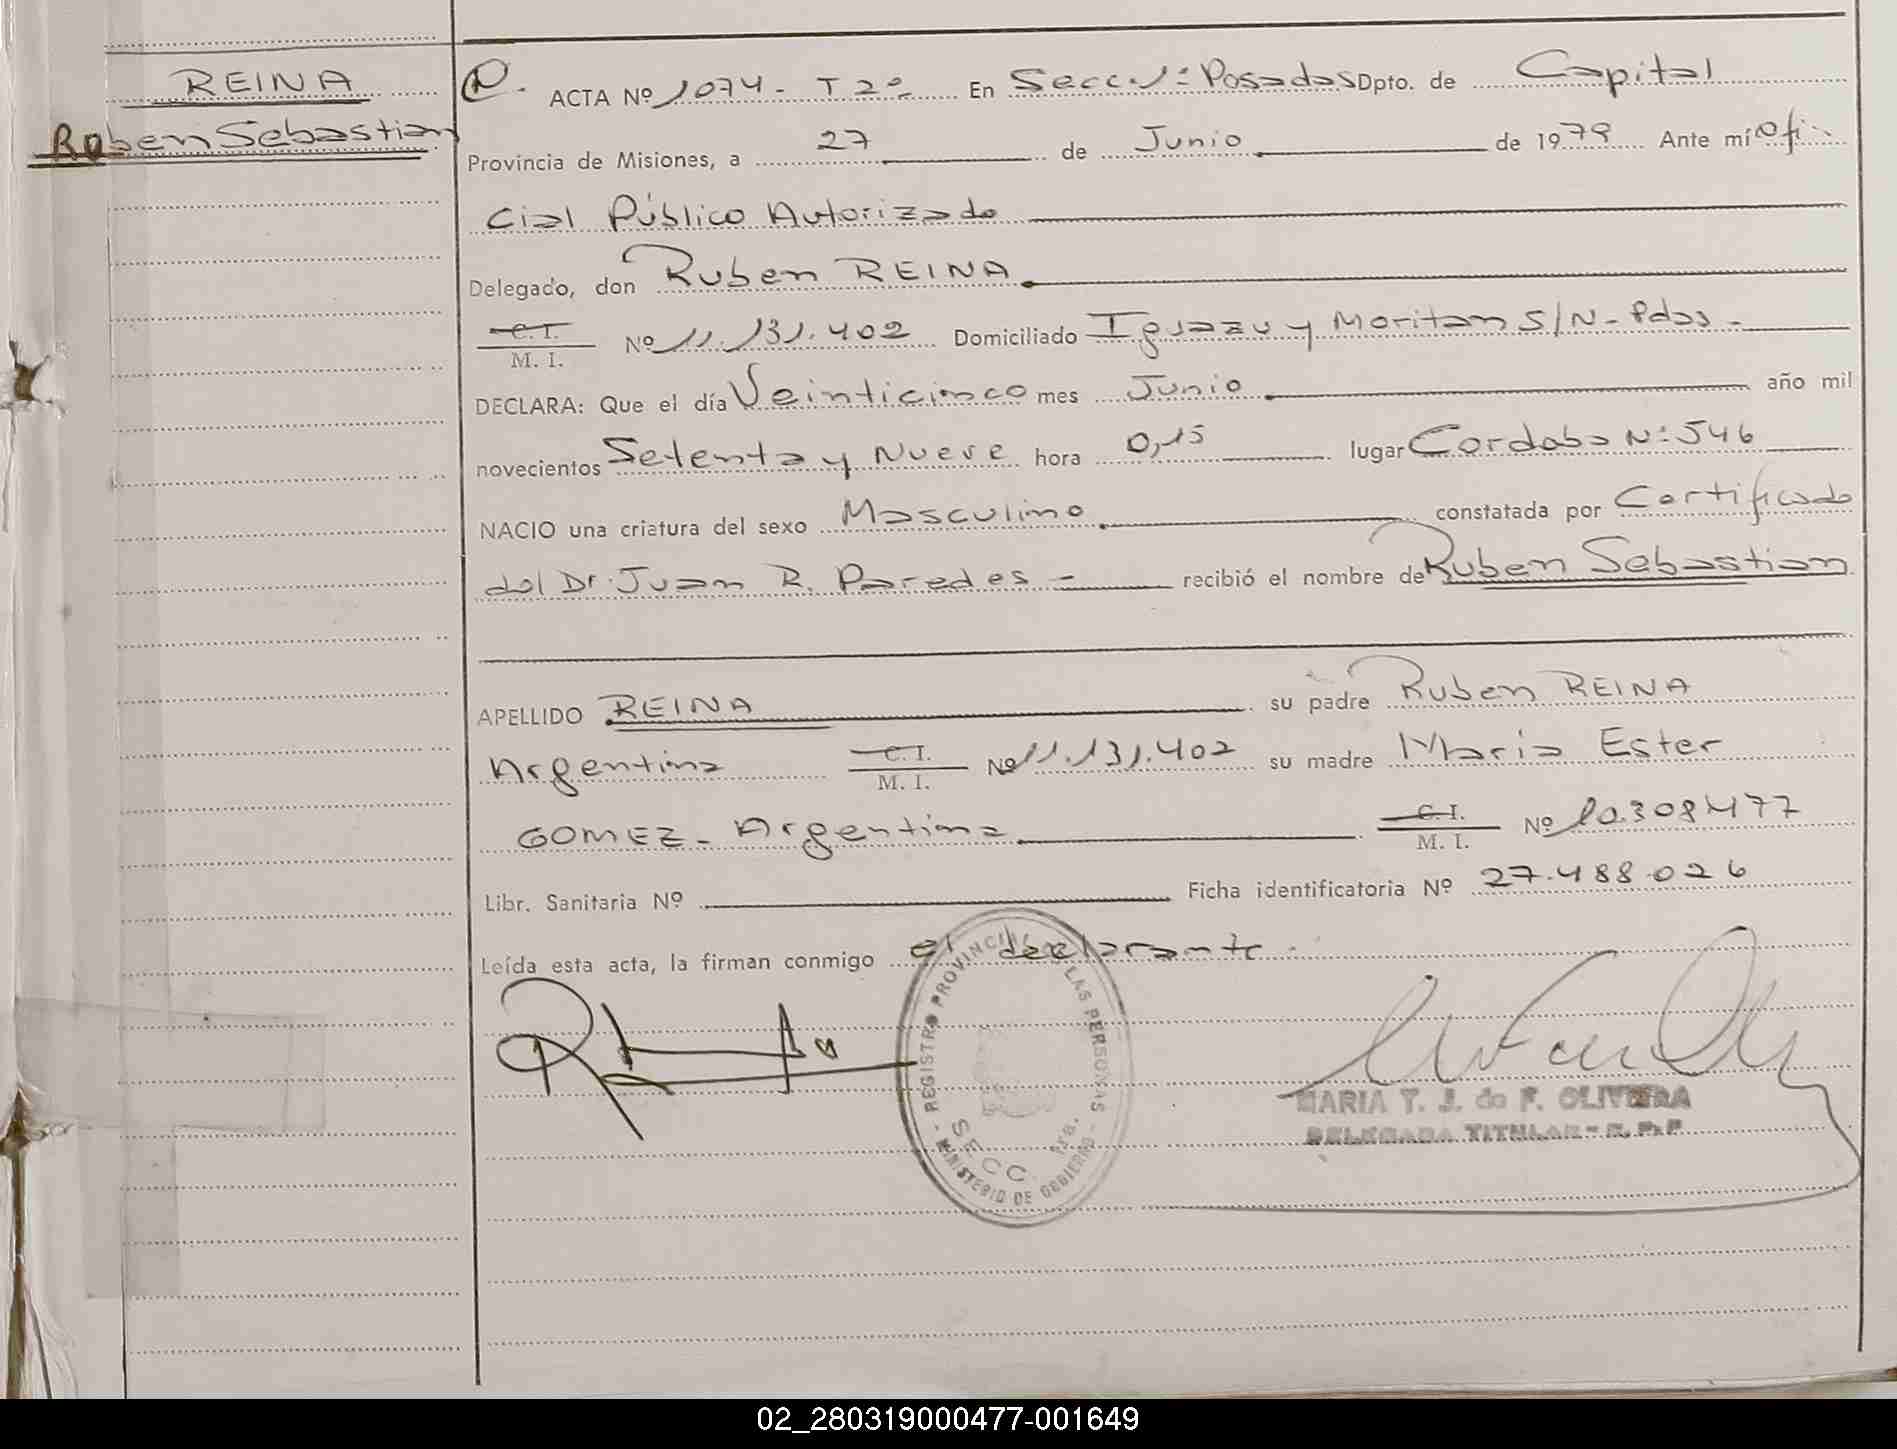 REINA
Ruben Sebastian
ACTA Nº 1074 - T 2º En Secc. 1ª Posadas Dpto. de Capital
Provincia de Misiones, a 27 de Junio de 1979 Ante mí Ofi-
cial Público Autorizado
Delegado, don Ruben REINA
C. I.
M. I. Nº 11.131.402 Domiciliado Iguazu y Moritan S/N - Pdas -
DECLARA: Que el día Veinticinco mes Junio año mil
novecientos Setenta y Nueve hora 0,15 lugar Cordoba Nº 546
NACIO una criatura del sexo Masculino constatada por Certificado
del Dr. Juan R. Paredes - recibió el nombre de Ruben Sebastian
APELLIDO REINA su padre Ruben REINA
Argentina C. I. M. I. Nº 11.131.402 su madre Maria Ester
GOMEZ - Argentina C. I. M. I. Nº 10.308477
Libr. Sanitaria Nº Ficha identificatoria Nº 27.488.026
Leída esta acta, la firman conmigo el declarante -
REGISTRO PROVINCIAL DE LAS PERSONAS - MINISTERIO DE GOBIERNO -
SECC. 1ra.
MARIA T. J. de F. OLIVERA
DELEGADA TITULAR - R. P. P
02_280319000477-001649